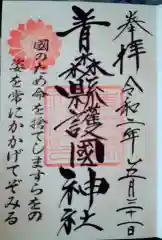 奉拝
令和二年五月三十一日
青森縣護國神社
国のため命を捨てしますらをの
姿を常にかかげてぞみる